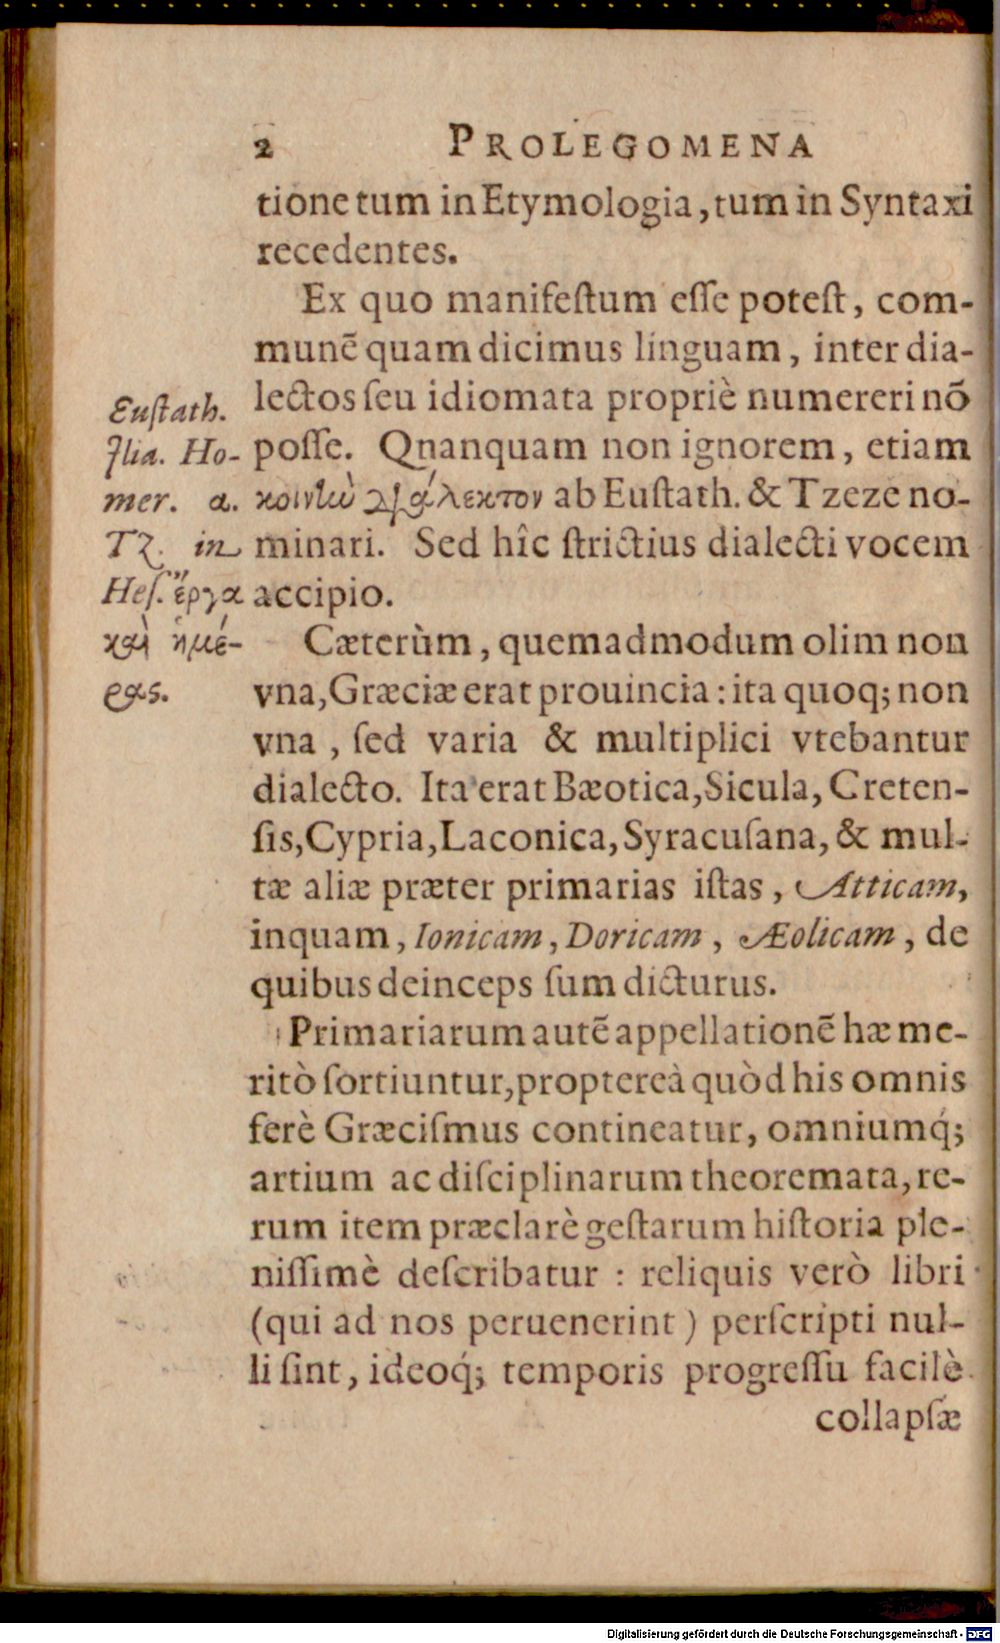 2 PROLEGOMENA
tione tum in Etymologia, tum in Syntaxi
recedentes.
Ex quo manifeſtum eſſe poteſt, com-
munē quam dicimus linguam, inter dia-
lectos ſeu idiomata propriè numereri nō
poſſe. Qnanquam non ignorem, etiam
κοινὴν διάλεκτον ab Euſtath. & Tzeze no-
minari. Sed hîc ſtrictius dialecti vocem
accipio.
Euſtath.
Ilia. Ho-
mer. α.
Tz. in
Heſ. ἔργα
καὶ ἡμέ-
ρας.
Cæterùm, quemadmodum olim non
vna, Græciæ erat prouincia: ita quoq; non
vna, ſed varia & multiplici vtebantur
dialecto. Ita erat Bæotica, Sicula, Creten-
ſis, Cypria, Laconica, Syracuſana, & mul-
tæ aliæ præter primarias iſtas, Atticam,
inquam, Ionicam, Doricam, Æolicam, de
quibus deinceps ſum dicturus.
Primariarum autē appellationē hæ me-
ritò ſortiuntur, proptereà quòd his omnis
ferè Græciſmus contineatur, omniumq́;
artium ac diſciplinarum theoremata, re-
rum item præclarè geſtarum hiſtoria ple-
niſſimè deſcribatur : reliquis verò libri
(qui ad nos peruenerint) perſcripti nul-
li ſint, ideoq́; temporis progreſſu facilè
collapſæ
Digitalisierung gefördert durch die Deutsche Forschungsgemeinschaft - DFG